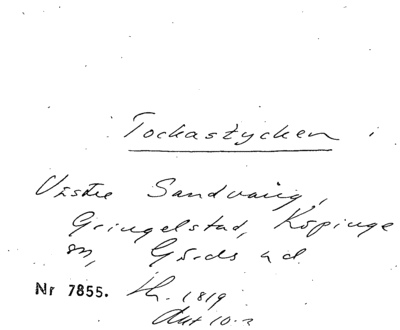 Tockastycken i
Västra Sandvång,
Gringelstad, Köpinge
sn, Gärds hd.
Nr 7855. th. 1819